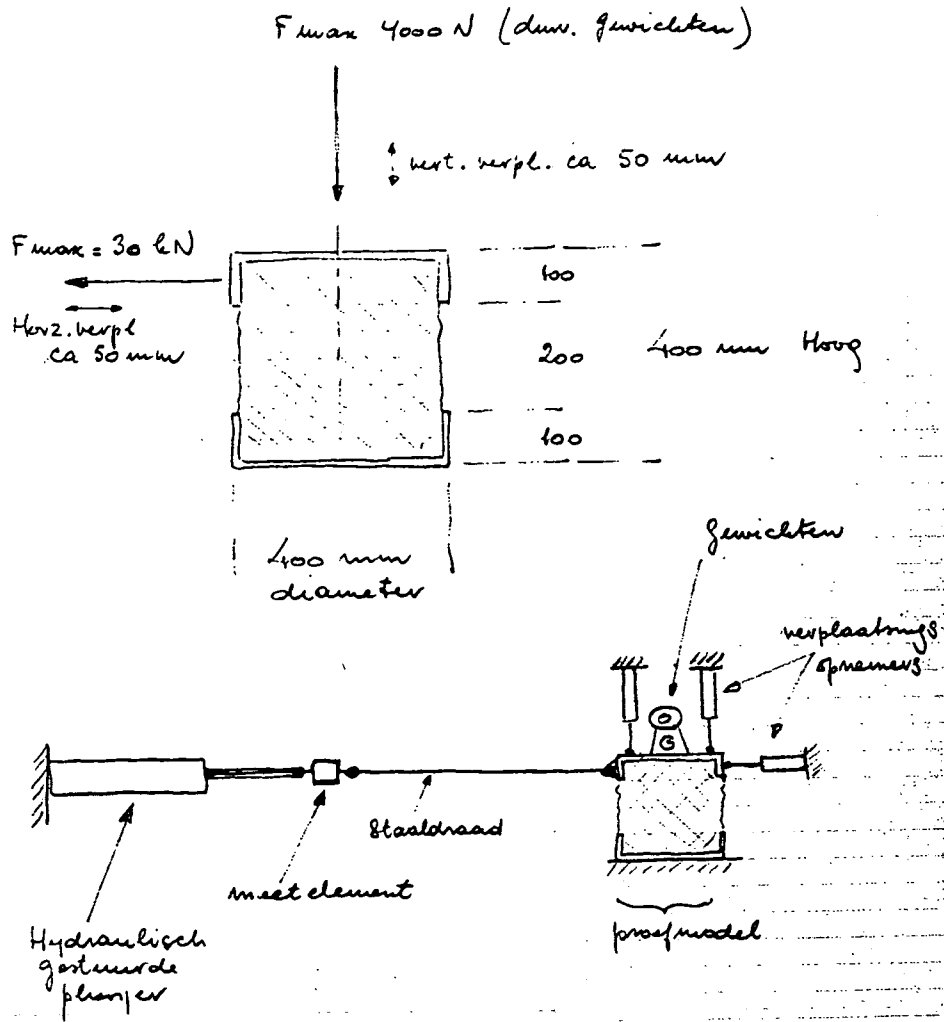 F max 4000 N (dmv. gewichten)
vert. verpl. ca 50 mm
F max = 30 kN
Horz. verpl
ca 50 mm
100
200
400 mm Hoog
100
400 mm
diameter
Gewichten
verplaatsings
opnemers
G
Staaldraad
meetelement
Hydraulisch
gestuurde
plunjer
proefmodel